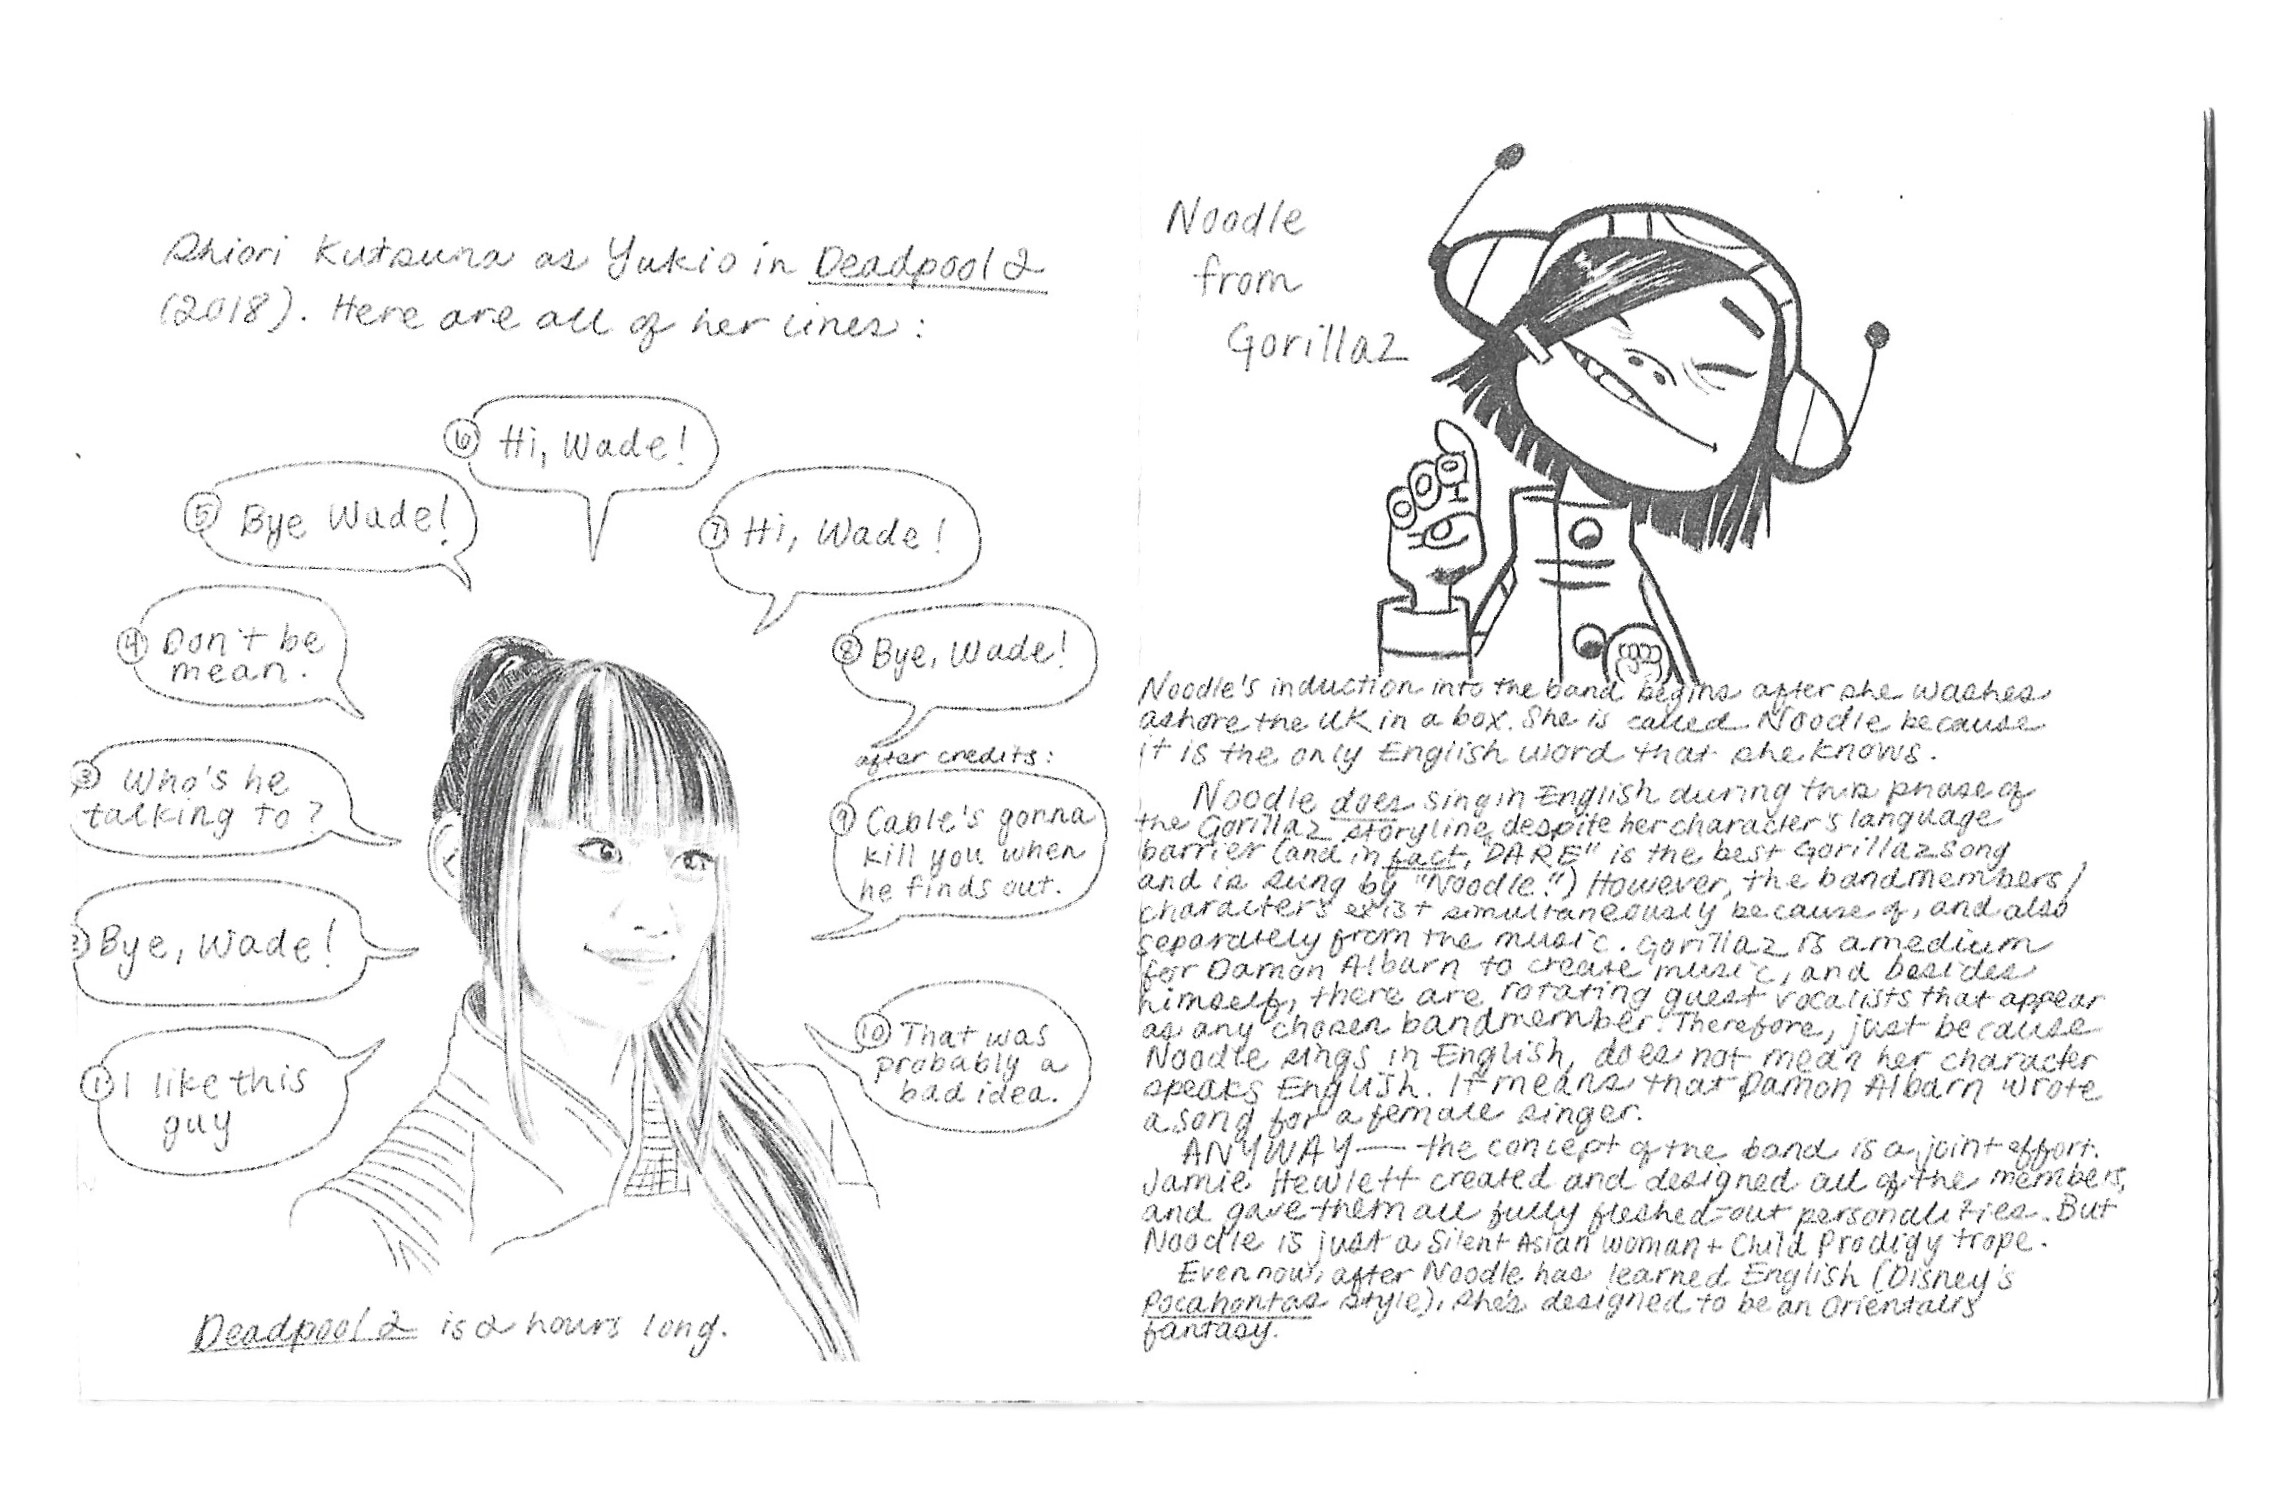 Shiori Kutsuna as Yukio in Deadpool 2
(2018). Here are all of her lines:
① I like this
guy
② Bye, Wade!
③ Who's he
talking to?
④ Don't be
mean.
⑤ Bye Wade!
⑥ Hi, Wade!
⑦ Hi, Wade!
⑧ Bye, Wade!
after credits:
⑨ Cable's gonna
kill you when
he finds out.
⑩ That was
probably a
bad idea.
Deadpool 2 is 2 hours long.
Noodle
from
Gorillaz
Noodle's induction into the band begins after she washes
ashore the UK in a box. She is called Noodle because
it is the only English word that she knows.
Noodle does sing in English during this phase of
the Gorillaz storyline, despite her character's language
barrier (and in fact, "DARE" is the best Gorillaz song
and is sung by "Noodle".) However, the bandmembers/
characters exist simultaneously because of, and also
separately from the music. Gorillaz is a medium
for Damon Albarn to create music, and besides
himself, there are rotating guest vocalists that appear
as any chosen bandmember. Therefore, just because
Noodle sings in English, does not mean her character
speaks English. It means that Damon Albarn wrote
a song for a female singer.
ANYWAY — the concept of the band is a joint effort.
Jamie Hewlett created and designed all of the members,
and gave them all fully fleshed-out personalities. But
Noodle is just a Silent Asian Woman + Child Prodigy trope.
Even now, after Noodle has learned English (Disney's
Pocahontas style), she's designed to be an Orientalis
fantasy.